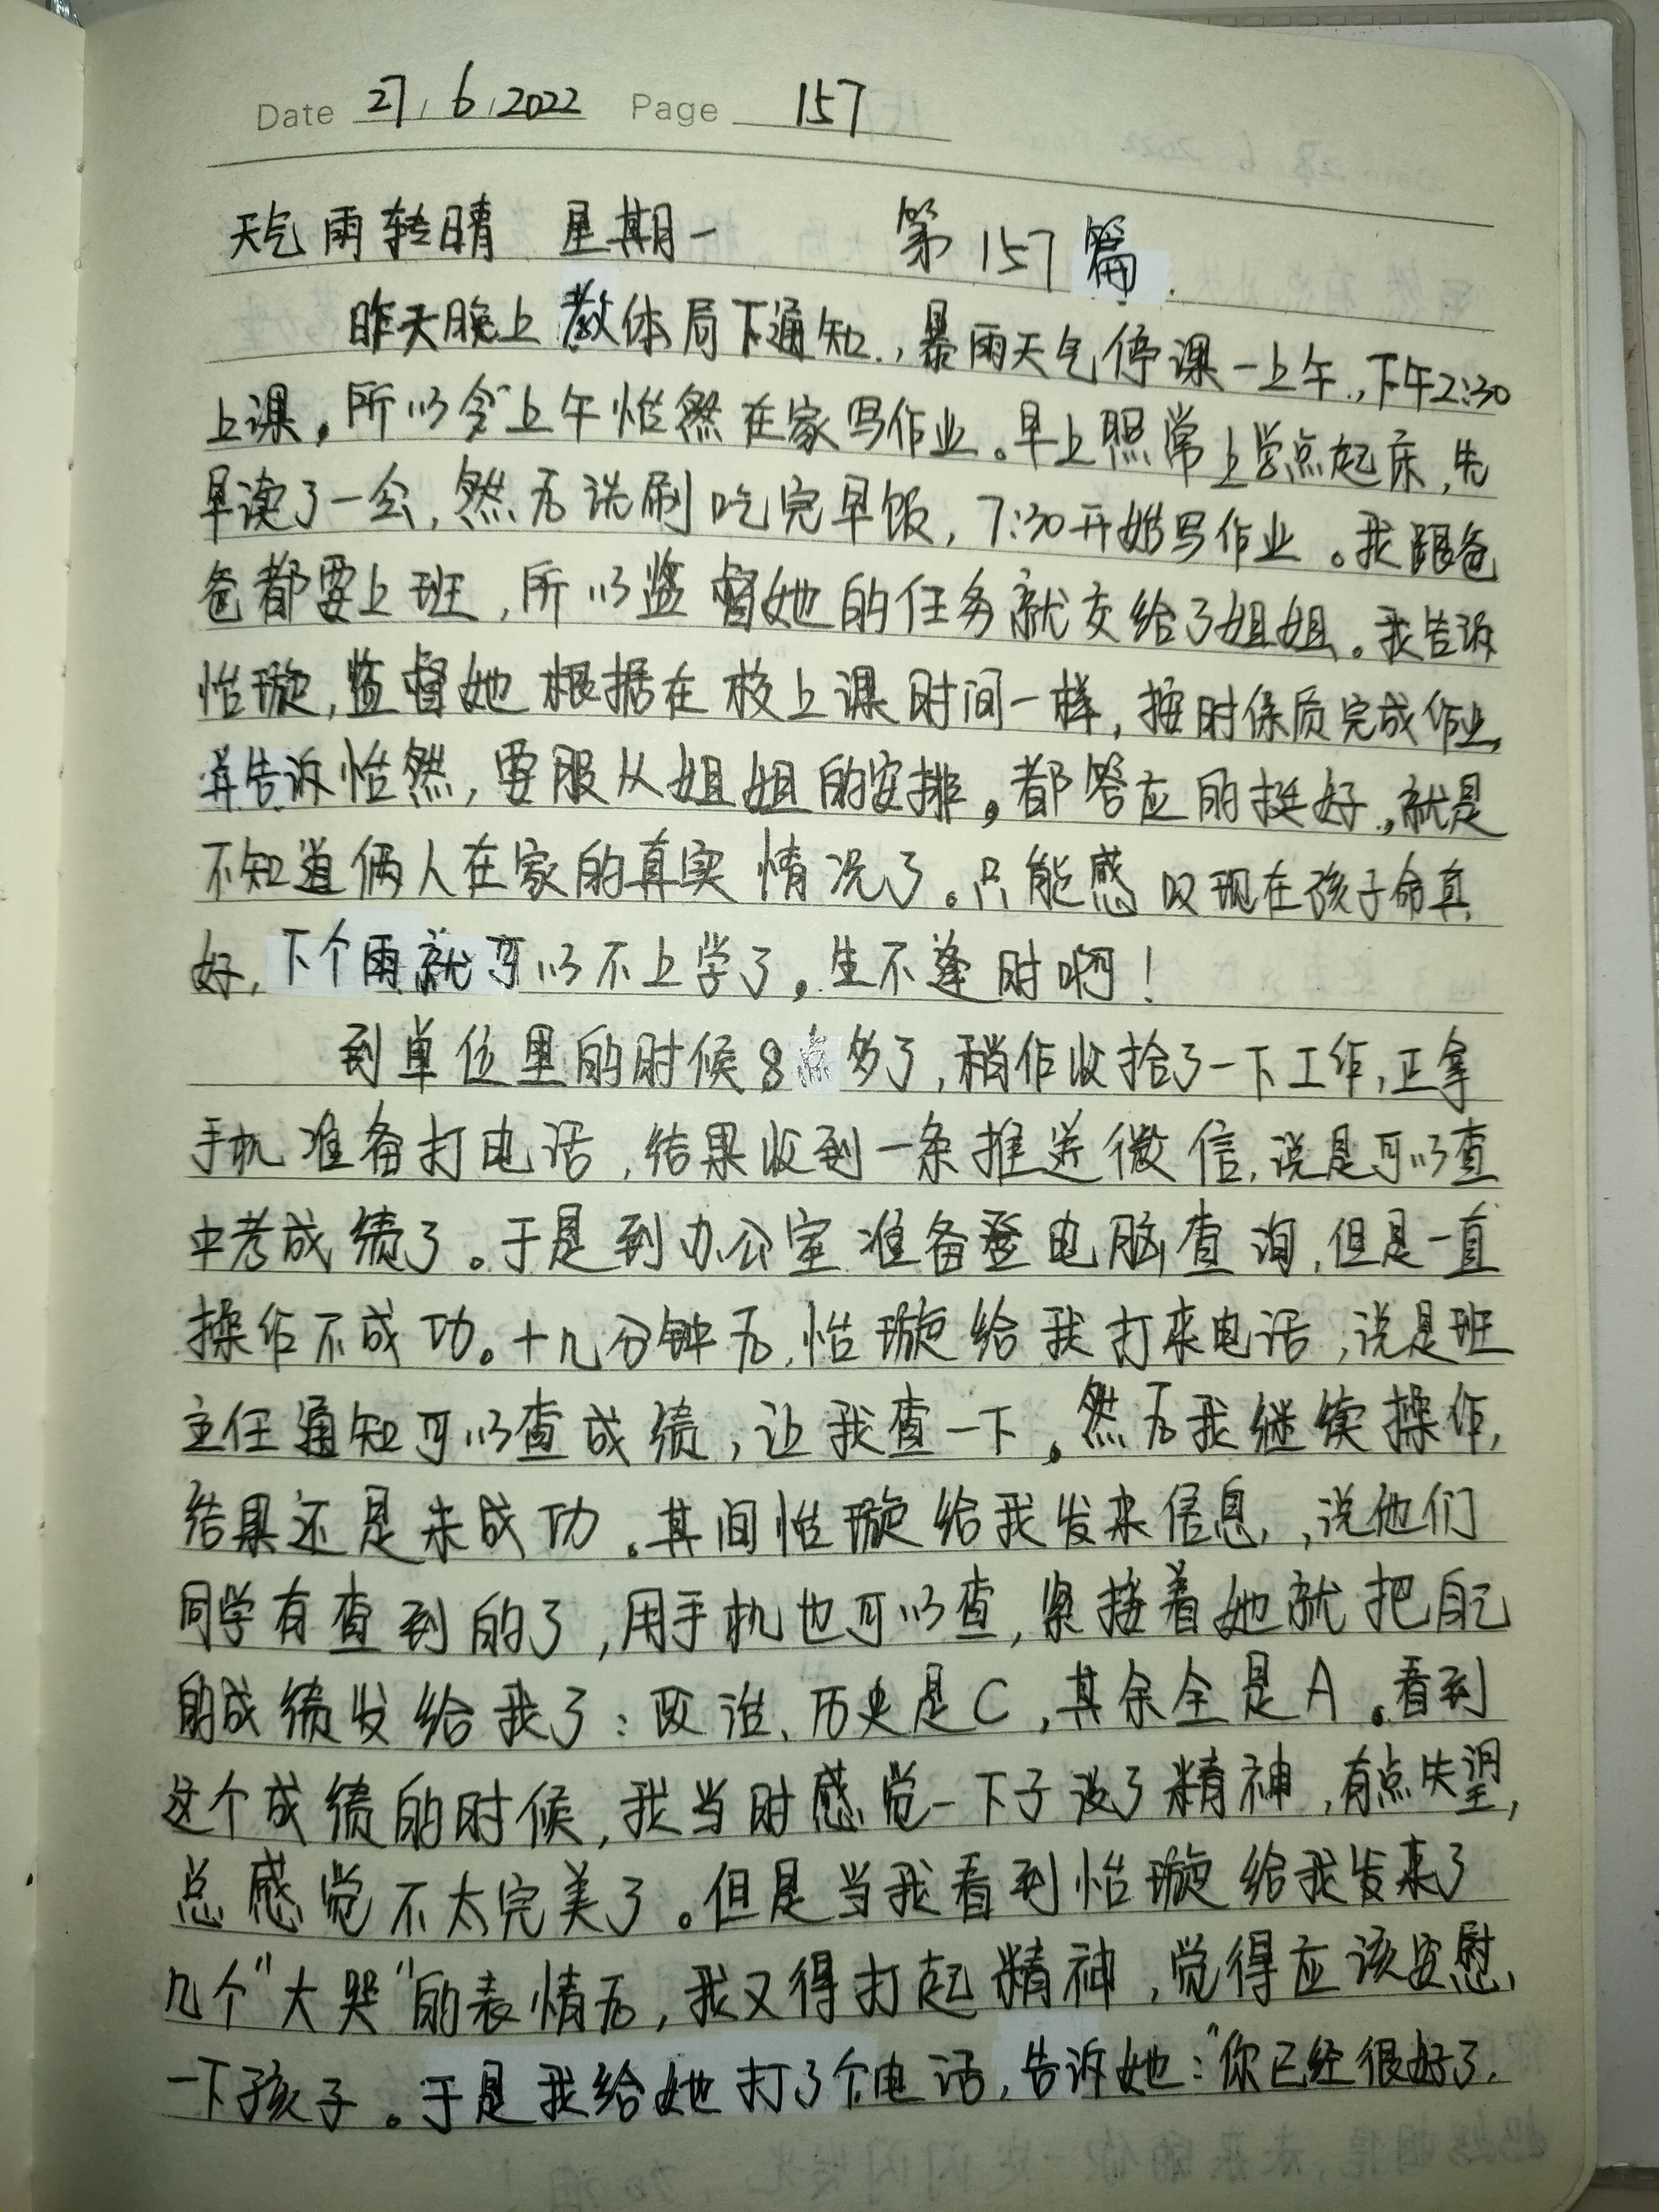 Date 27/6/2022 Page 157
天气雨转晴 星期一 第157篇
昨天晚上教体局下通知,暴雨天气停课一上午,下午2:30
上课。所以今上午怡然在家写作业。早上照常上学点起床,先
早读了一会,然后洗刷吃完早饭,7:30开始写作业。我跟爸
爸都要上班,所以监督她的任务就交给了姐姐。我告诉
怡璇,监督她根据在校上课时间一样,按时保质完成作业,
并告诉怡然,要服从姐姐的安排。都答应的挺好,就是
不知道俩人在家的真实情况了。只能感叹现在孩子命真
好,下个雨就可以不上学了。生不逢时啊!
到单位里的时候8点多了,稍作收拾了一下工作,正拿
手机准备打电话,结果收到一条推送微信,说是可以查
中考成绩了。于是到办公室准备登电脑查询,但是一直
操作不成功。十几分钟后,怡璇给我打来电话,说是班
主任通知可以查成绩,让我查一下。然后我继续操作,
结果还是未成功。其间怡璇给我发来信息,说他们
同学有查到的了,用手机也可以查,紧接着她就把自己
的成绩发给我了:政治、历史是C,其余全是A。看到
这个成绩的时候,我当时感觉一下子没了精神,有点失望,
总感觉不太完美了。但是当我看到怡璇给我发来了
几个"大哭"的表情后,我又得打起精神,觉得应该安慰
一下孩子。于是我给她打了个电话,告诉她:"你已经很好了.